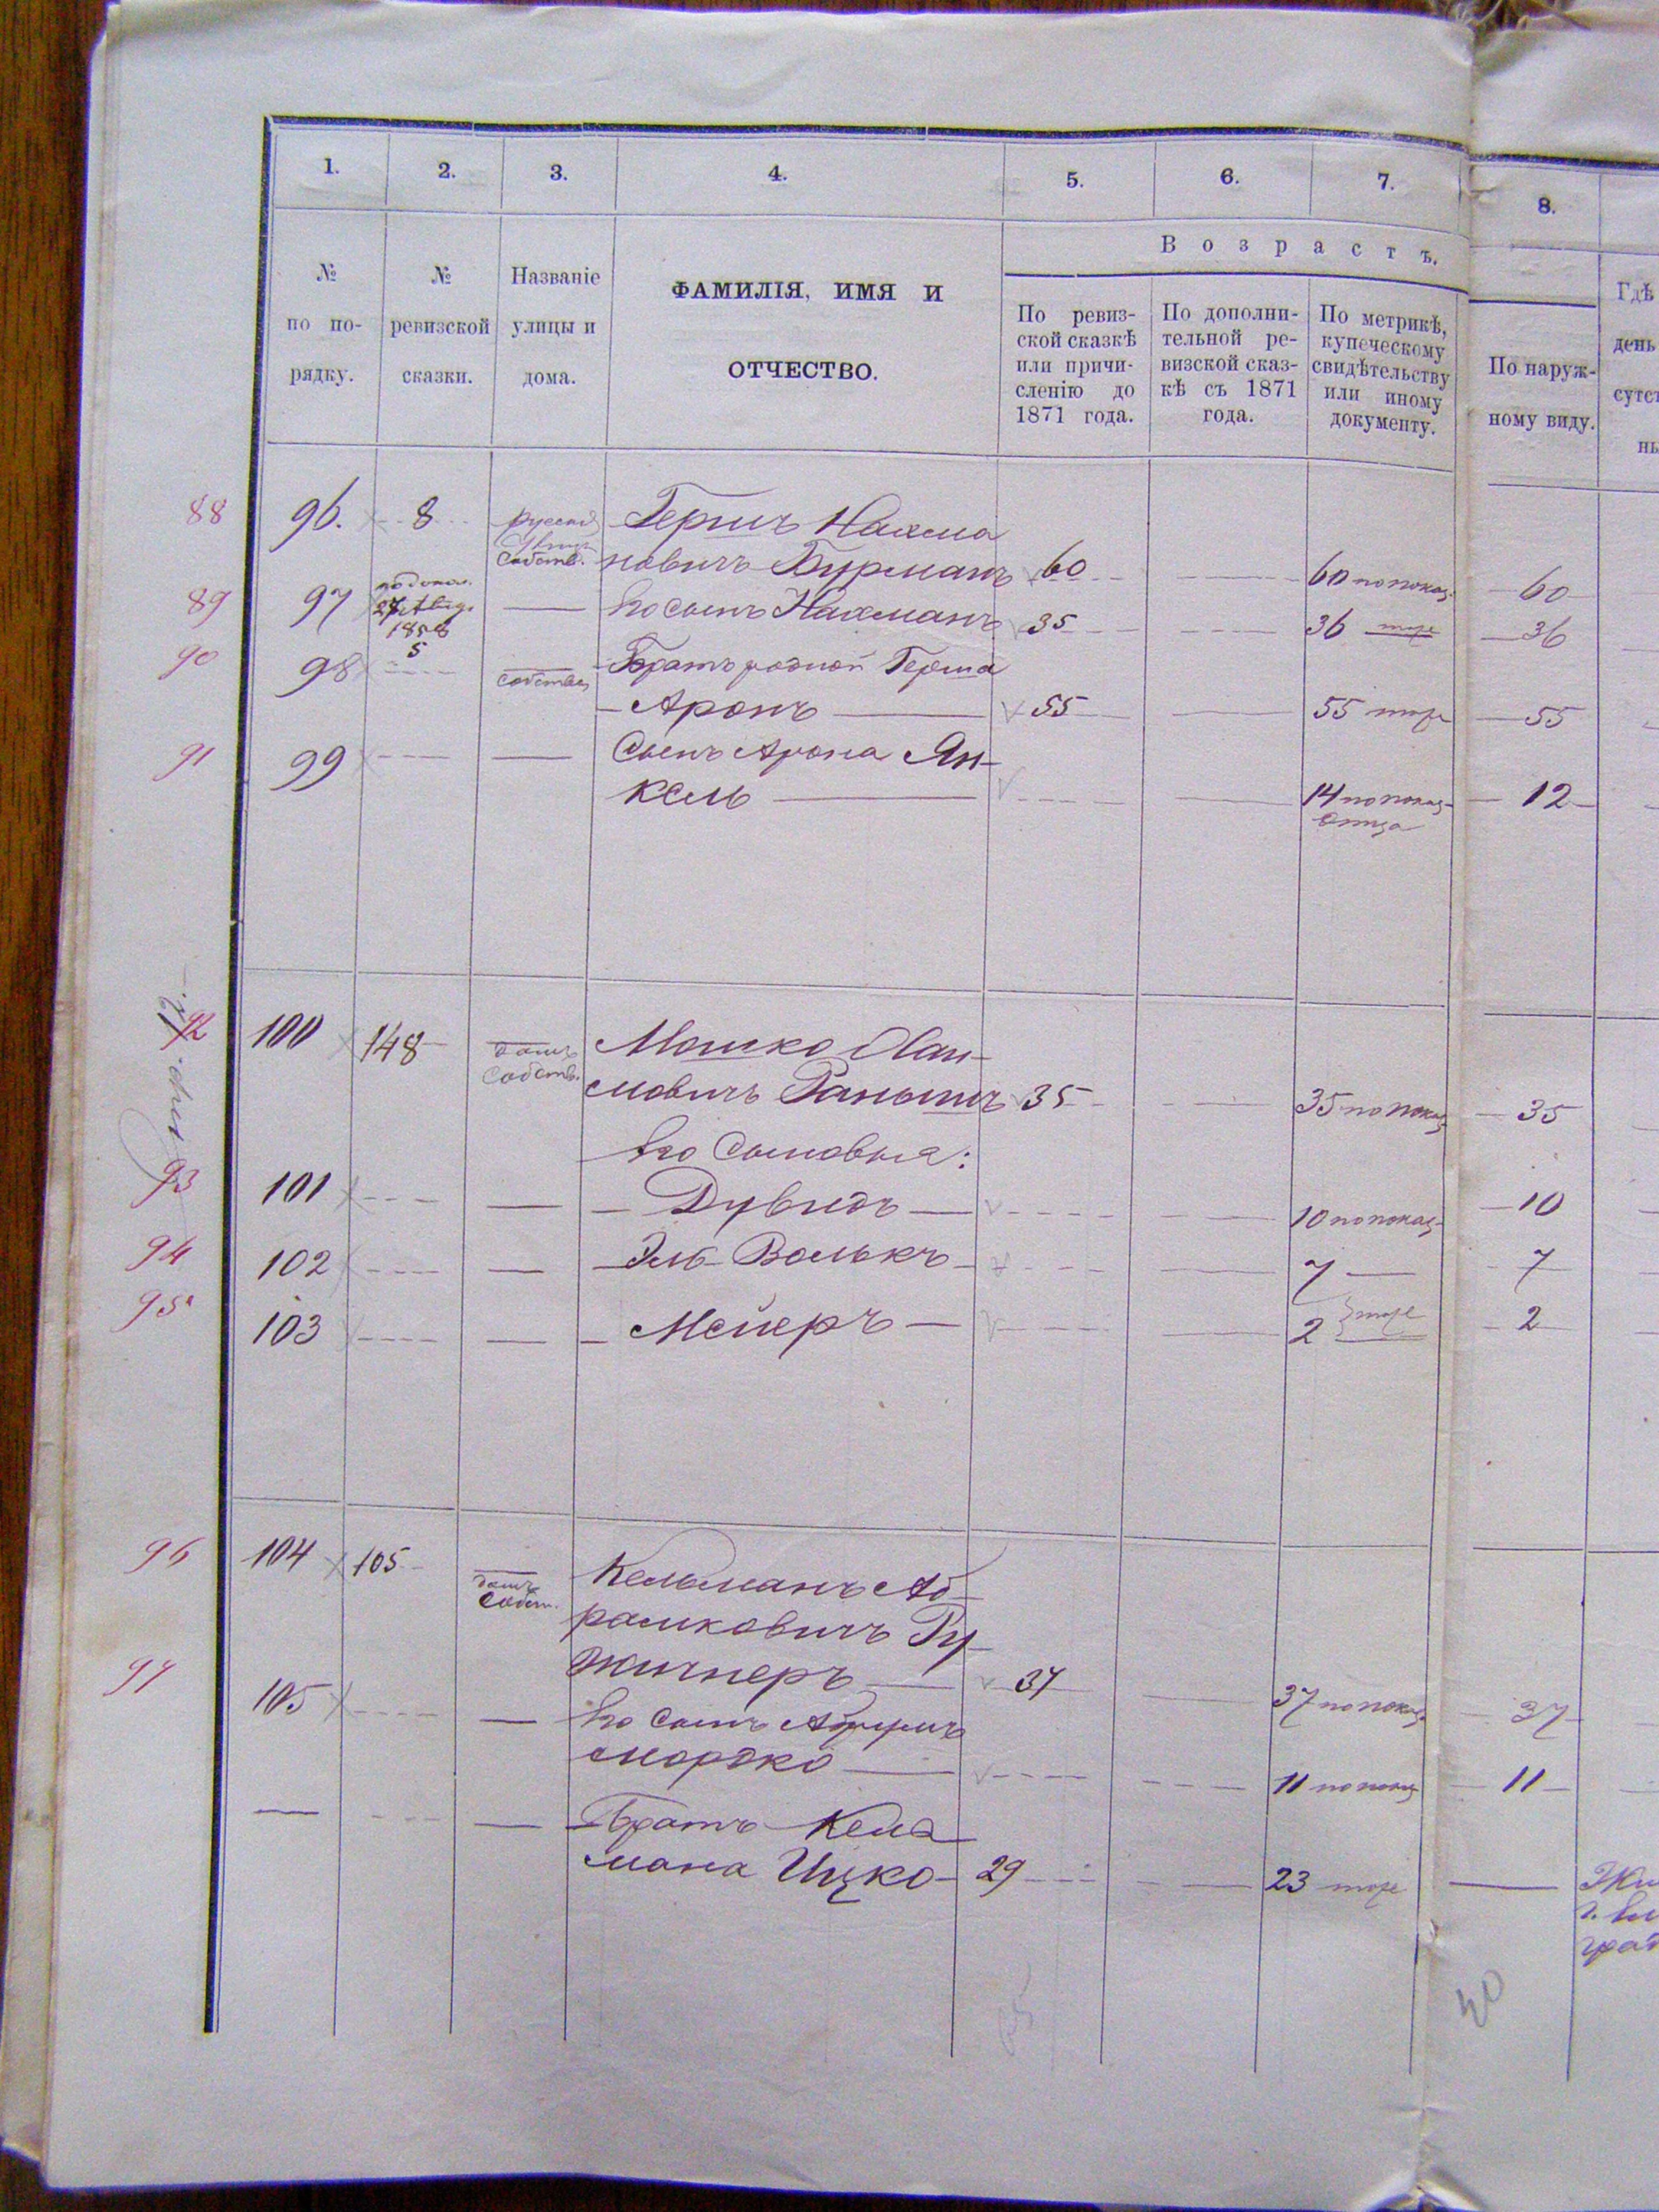 1. 2. 3. 4. 5. 6. 7. 8.
В о з р а с т ъ.
№ по по- рядку.
№ ревизской сказки.
Названіе улицы и дома.
ФАМИЛІЯ, ИМЯ И
ОТЧЕСТВО.
По ревиз-
ской сказкѣ
или причи-
сленію до
1871 года.
По дополни-
тельной ре-
визской сказ-
кѣ съ 1871
года.
По метрикѣ,
купеческому
свидѣтельству
или иному
документу.
По наруж-
ному виду.
Гдѣ
день
сутст
ны
88 96. 8 Гершъ Нахма
собств. новичъ Бурманъ 60 60 по показ. 60
89 97 Его сынъ Нахманъ 35 36 тоже 36
1858
90 98 5 Братъ родной Герша
Аронъ 55 55 тоже 55
91 99 Сынъ Арона Ян-
кель 14 по показ. 12
отца
92 100 148 домъ Мошко Хаи-
собств. мовичъ 35 35 по показ. 35
Его сыновья:
93 101 Дувидъ 10 по показ. 10
94 102 Эль Волькъ 7 7
95 103 Мейеръ 2 тоже 2
96 104 105 домъ Кельманъ Аб-
собст. рамковичъ Ру-
жинеръ 37 37 по показ. 37
97 105 Его сынъ
Мордко 11 по показ. 11
Братъ Кель
мана Ицко 29 23 тоже